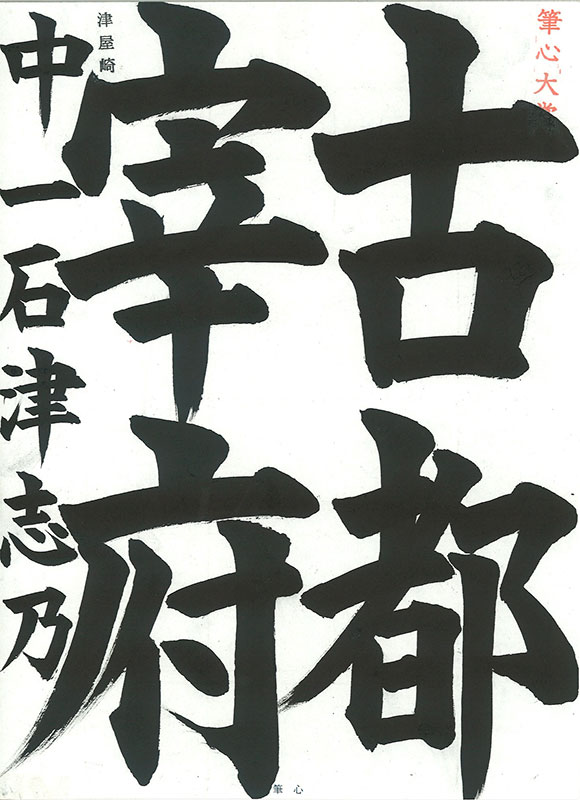 筆心大賞
古都
宰府
津屋崎
中一石津志乃
筆心